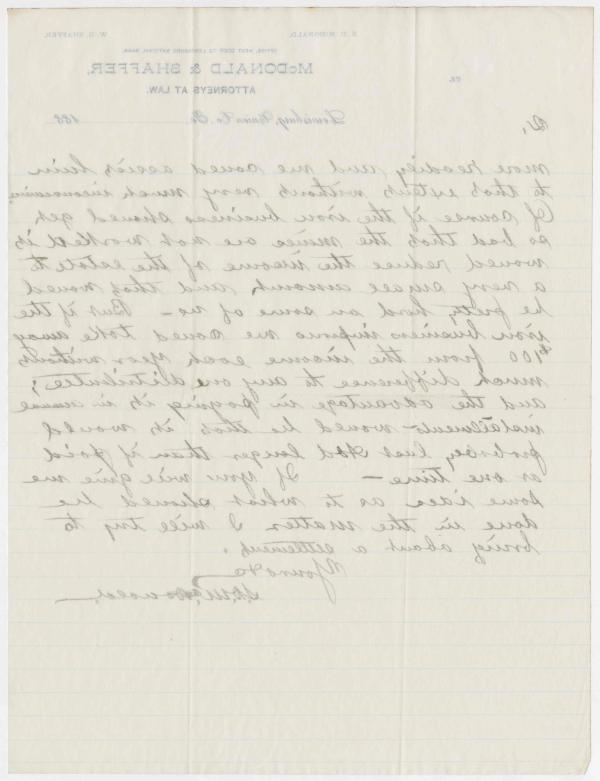 S. P. McDONALD. W. O. SHAFFER.
OFFICE, NEXT DOOR TO LEWISBURG NATIONAL BANK.
McDONALD & SHAFFER,
ATTORNEYS AT LAW.
Lewisburg, Union Co. Pa. 188
2,
more readily and we could assist him
to that extent without very much inconvenience
Of course if the iron business should get
so bad that the mines are not worked it
would reduce the income of the estate to
a very small amount, and that would
be pretty hard on some of us — But if the
iron business improves we could take away
$100 from the income each year without
much difference to any one distributee;
and the advantage in paying it in annual
installments would be that it would
probably last Abd longer than if paid
at one time — If you will give me
some idea as to what should be
done in the matter I will try to
bring about a settlement.
Yours &c
McDonald